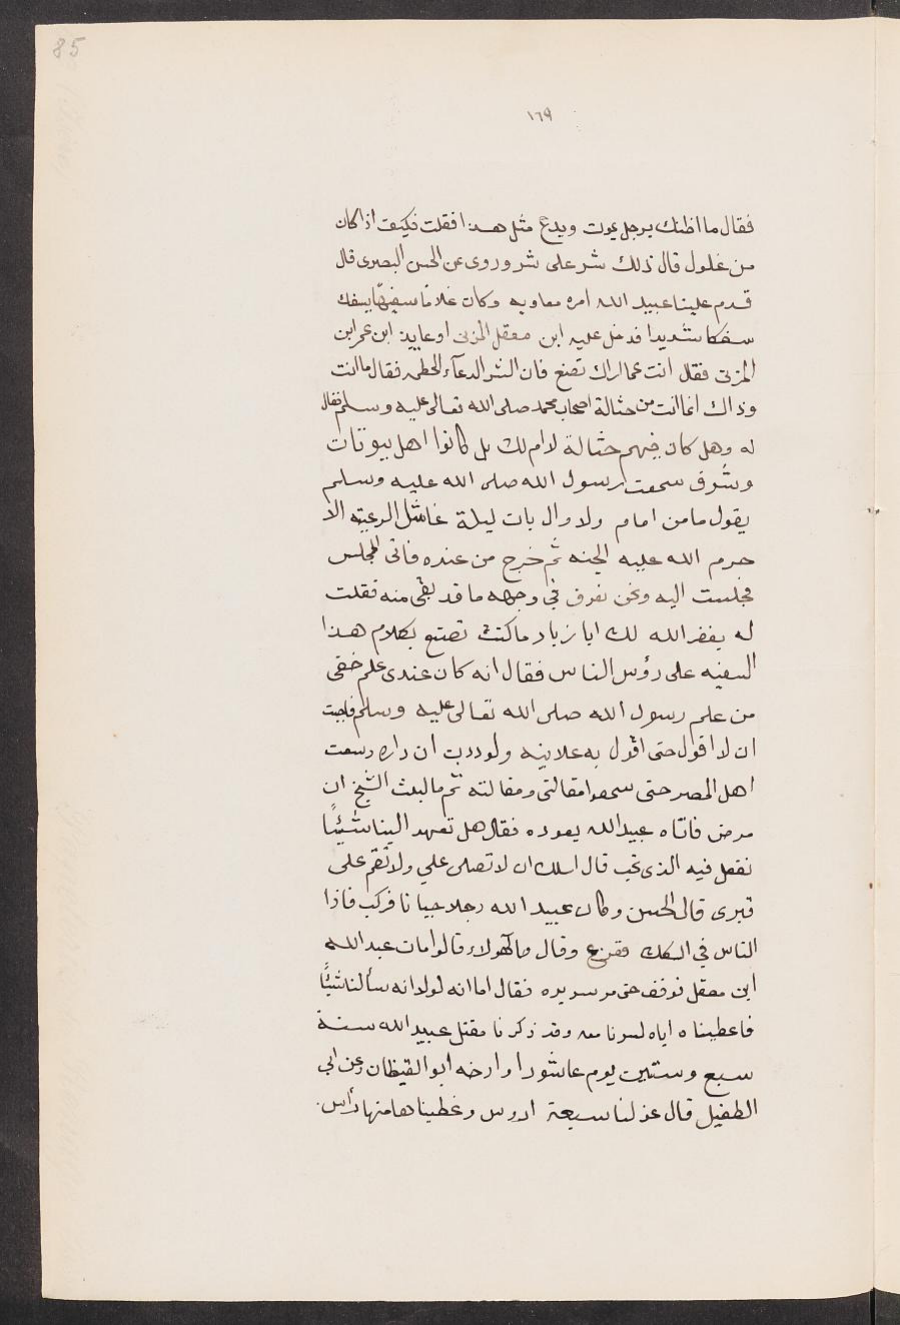 85
١٦٩
فقال ما اظنك برجل يموت ويدع مثل هذا فقلت فكيف اذا كان
من غلول قال ذلك شر على شر وروى عن الحسن البصرى قال
قدم علينا عبيد الله امره معاويه وكان غلاما سفيهًا يسفك
سفكا شديدا فدخل عليه ابن معقل المزنى او عايذ ابن عمر ابن
المزنى فقل انت عما اراك تصنع فان الشر الدعآء الحطمه فقال ما انت
وذاك انما انت من حثالة اصحاب محمد صلى الله تعالى عليه وسلم فقال
له وهل كان فيهم حثالة لا ام لك بل كانوا اهل بيوتات
وشرف سمعت رسول الله صلى الله عليه وسلم
يقول ما من امام ولا وال بات ليلة غاشل الرعيته الا
حرم الله عليه الجنه ثم خرج من عنده فاتى المجلس
فجلست اليه ونحن نعرف فى وجهه ما قد بقى منه فقلت
له يغفر الله لك ابا زياد ما كنت تصنع بكلام هذا
السفيه على رؤس الناس فقال انه كان عندى علم خفى
من علم رسول الله صلى الله تعالى عليه وسلم فاحببت
ان لا اقول حتى اقول به علانيه ولوددت ان داره وسعت
اهل المصر حتى سمعوا مقالتى ومقالته ثم ما لبث الشيخ ان
مرض فاتاه عبيد الله يعوده فقال هل تعهد الينا شيئًا
نفعل فيه الذى تحب قال اسلك ان لا تصلى علي ولا تقم على
قبرى قال الحسن وكان عبيد الله رجلا جبانا فركب فاذا
الناس في السكك ففزع وقال ما هولاء قالوا مات عبد الله
ابن معقل فوقف حتى مر سريره فقال اما انه لولا انه سألنا شيئًا
فاعطيناه اياه لسرنا معه وقد ذكرنا مقتل عبيد الله سنة
سبع وستين يوم عاشورا وارخه ابو اليقظان وعن ابي
الطفيل قال عزلنا سبعة اروس وغطينا ها منها رأس.